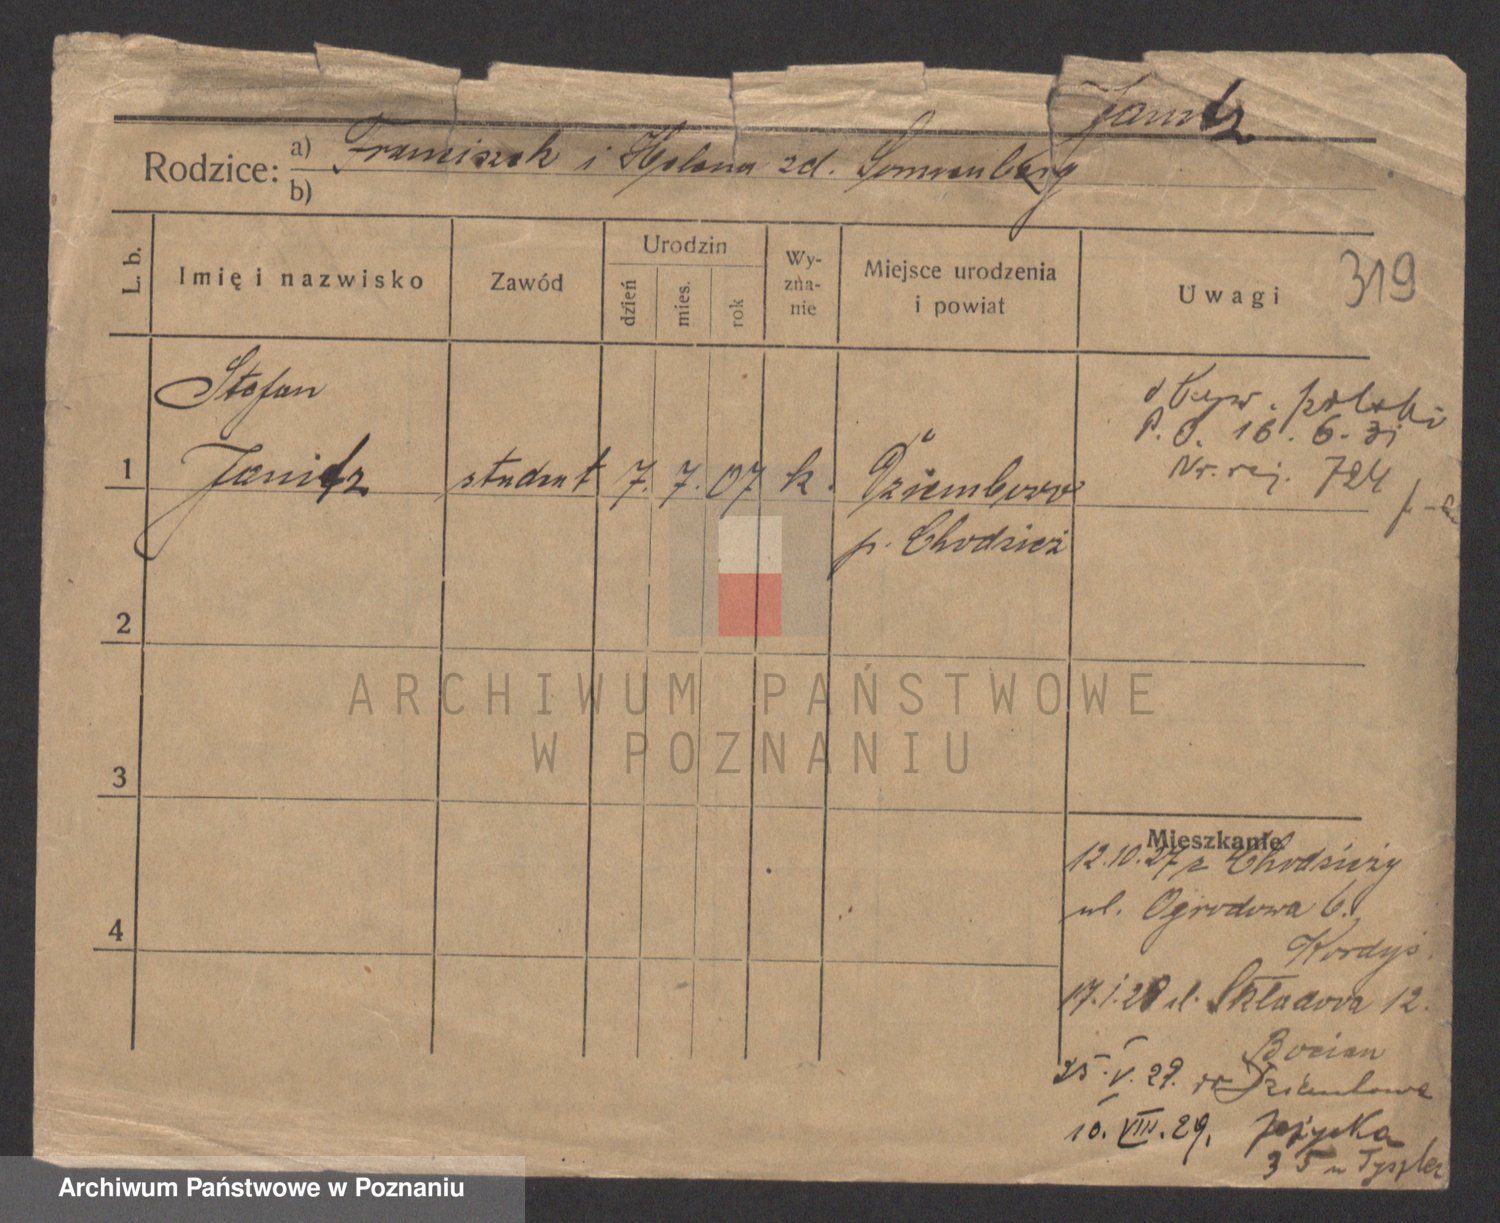 Janitz
Rodzice: a) Franciszek i Helena zd. Sonnenberg
b)
L. b. Imię i nazwisko Zawód Urodzin dzień mies. rok Wyznanie Miejsce urodzenia i powiat Uwagi 319
Stefan
1 Janitz student 7. 7. 07 k. Dziembowo
p. Chodzież
obyw. polski
P. O. 16. 6. 31
Nr. rej. 724
2
3
4
Mieszkanie
12.10.27 z Chodzieży
ul. Ogrodowa 6.
Kordyś.
17.1.28 ul. Składowa 12.
Bocian
25. V. 29. Dziembowo
10. VIII. 29. Jeżycka
35
ARCHIWUM PAŃSTWOWE
W POZNANIU
Archiwum Państwowe w Poznaniu